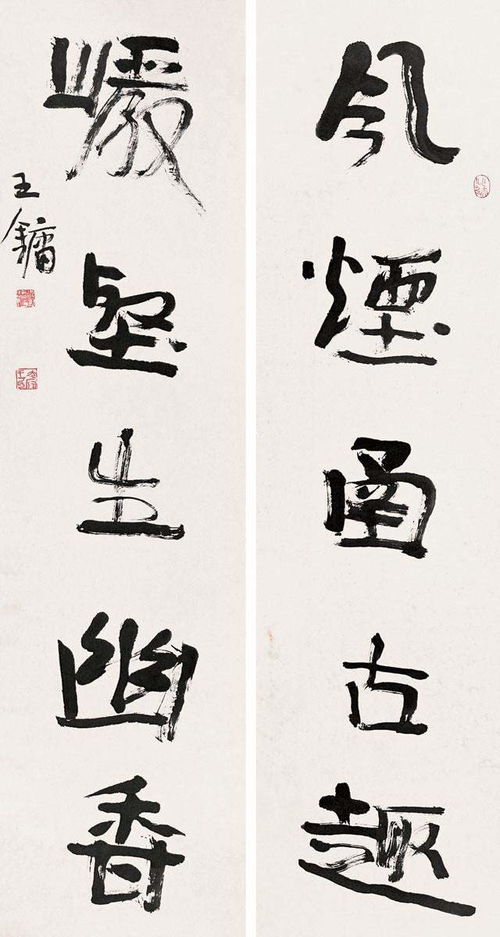 风煙函古趣
巖壑生幽香
王鏞